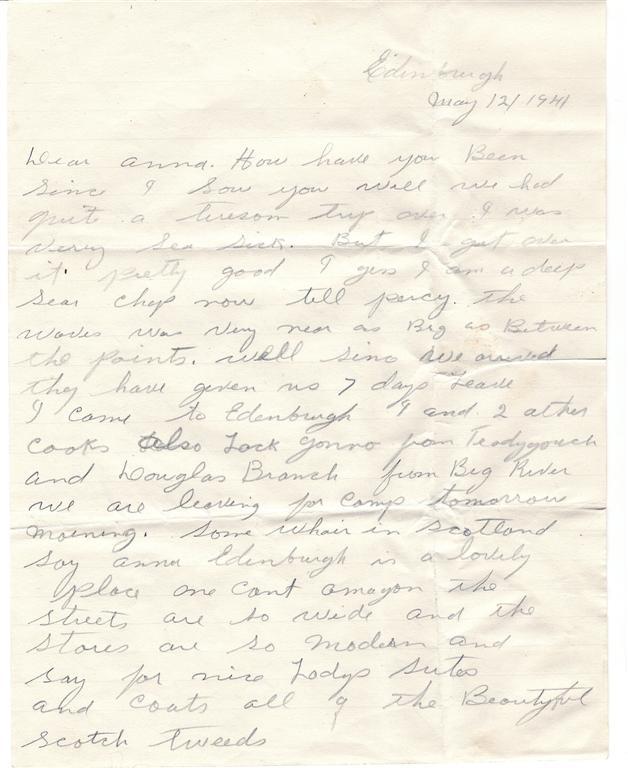 Edinburgh
May 12/1941
Dear anna. How have you Been
since I Sow you will we had
quite a tuesom try over. I was
verry Sea Sick. But I got over
it. pretty good I gess I am a deep
Sear chap now till percy. the
waves was very near as Big as Between
the points. well sinc we arrived
they have given us 7 days Leave
I come to Edenburgh I and 2 other
cooks also Jack from
and Douglas Branch from Big River
we are leaving for camp tomorrow
morning. Some Whair in Scotland
say anna Edinburgh is a lovely
place one cant amagon the
streets are so wide and the
stores are so modern and
say for nice Ladys Sutes
and coats all of the Beautyful
scotch tweeds